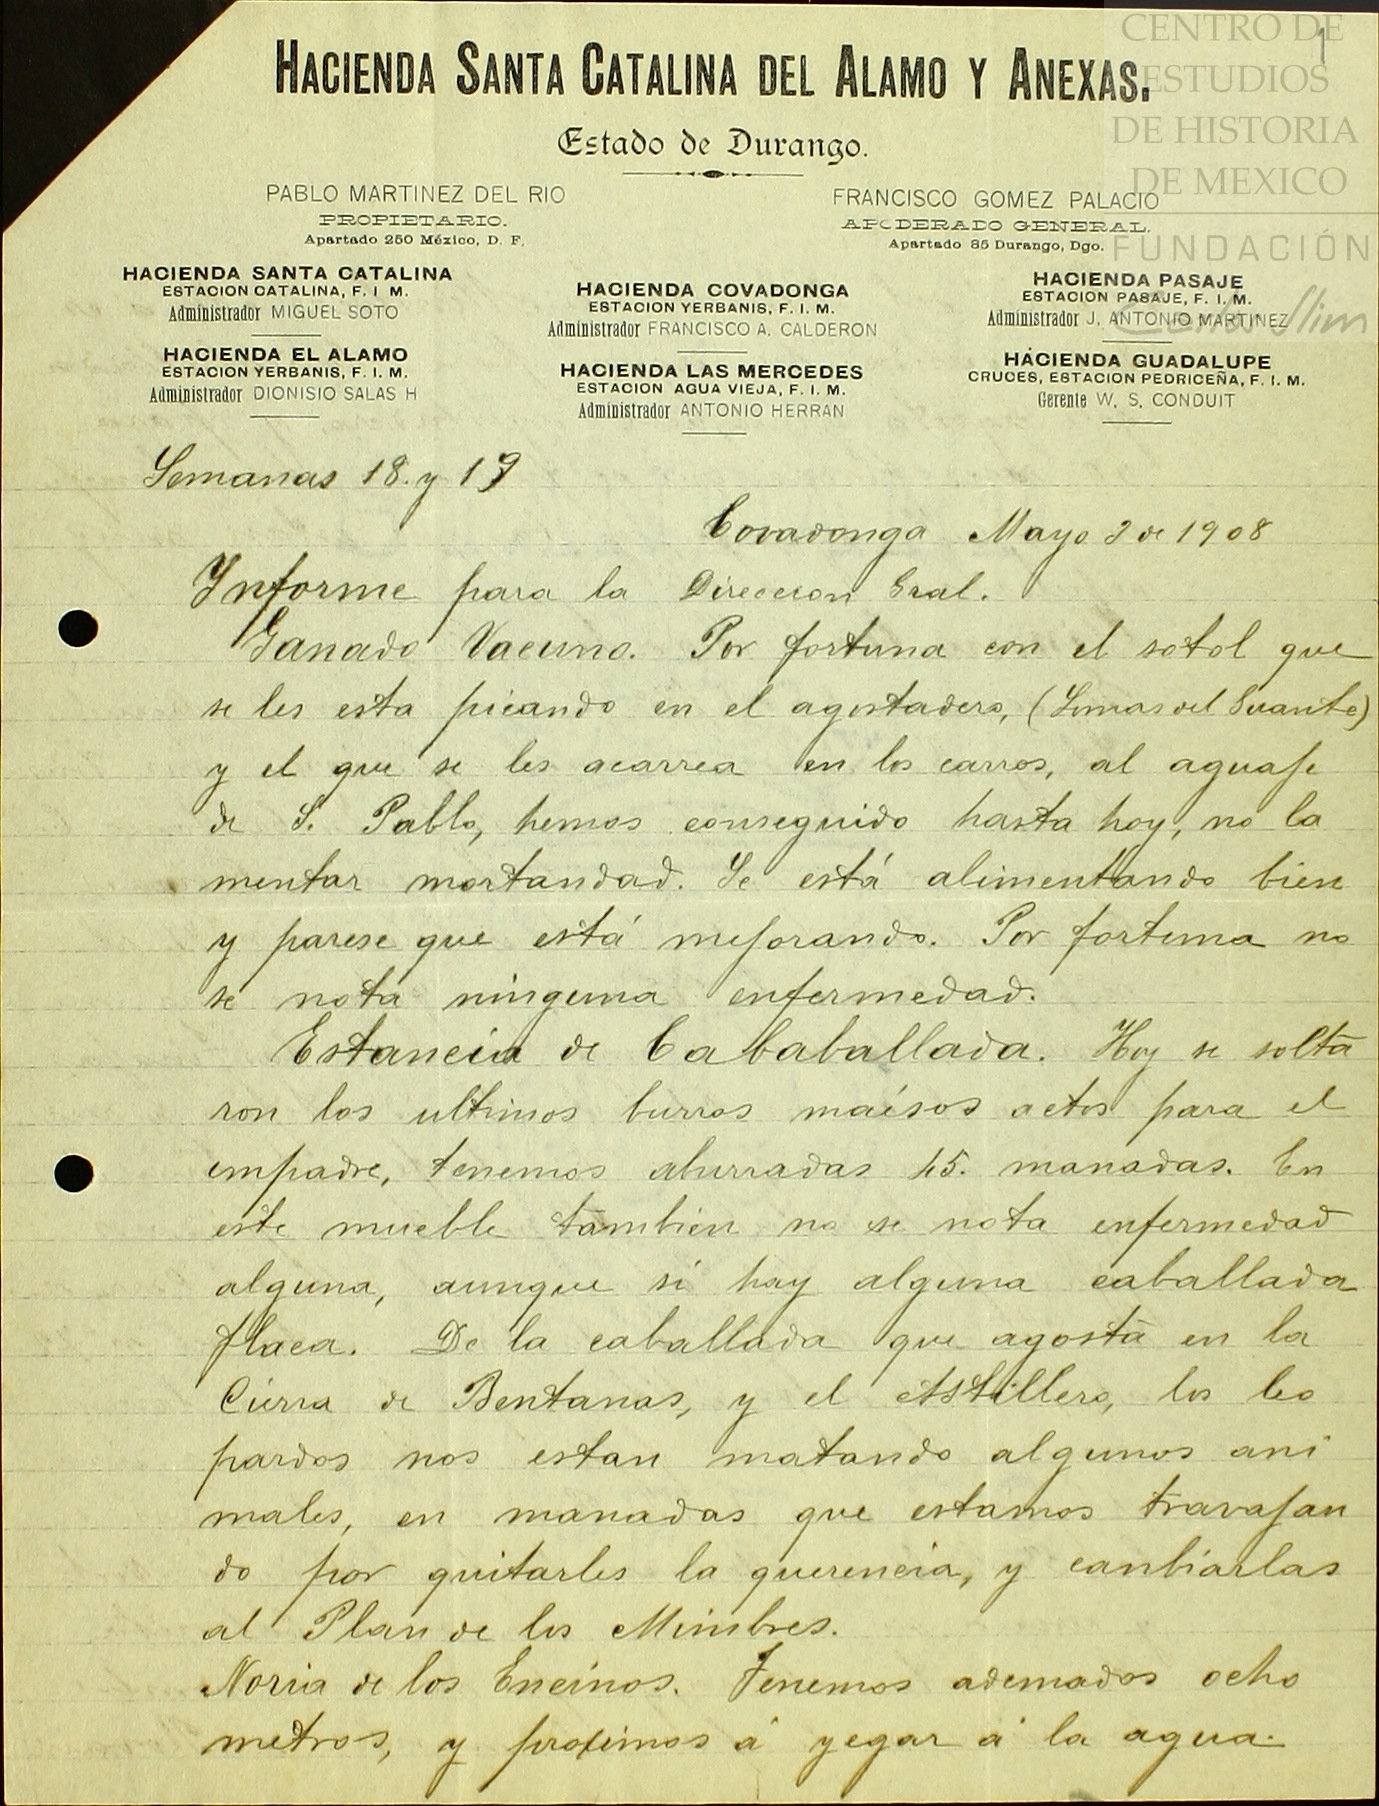 CENTRO DE
ESTUDIOS
DE HISTORIA
DE MEXICO
FUNDACIÓN
1
HACIENDA SANTA CATALINA DEL ALAMO Y ANEXAS.
Estado de Durango.
PABLO MARTINEZ DEL RIO
PROPIETARIO.
Apartado 250 México, D. F.
FRANCISCO GOMEZ PALACIO
APODERADO GENERAL.
Apartado 85 Durango, Dgo.
HACIENDA SANTA CATALINA
ESTACION CATALINA, F. I M.
Administrador MIGUEL SOTO
HACIENDA EL ALAMO
ESTACION YERBANIS, F. I. M.
Administrador DIONISIO SALAS H
HACIENDA COVADONGA
ESTACION YERBANIS, F. I. M.
Administrador FRANCISCO A. CALDERON
HACIENDA LAS MERCEDES
ESTACION AGUA VIEJA, F. I. M.
Administrador ANTONIO HERRAN
HACIENDA PASAJE
ESTACION PASAJE, F. I. M.
Administrador J. ANTONIO MARTINEZ
HACIENDA GUADALUPE
CRUCES, ESTACION PEDRICEÑA, F. I. M.
Gerente W. S. CONDUIT
Semanas 18. y 19
Covadonga Mayo de 1908
Informe para la Direccion Gral.
Ganado Vacuno. Por fortuna con el sotol que
se les esta picando en el agostadero, (Lomas del
y el que se les acarrea en los carros, al aguaje
de S. Pablo, hemos conseguido hasta hoy, no la
mentar mortandad. Se está alimentando bien
y parese que está mejorando. Por fortuna no
se nota ninguna enfermedad.
Estancia de Cababallada. Hoy se solta
ron los ultimos burros maésos actos para el
empadre, tenemos aburradas 45. manadas. En
este mueble tambien no se nota enfermedad
alguna, aunque si hay alguna caballada
flaca. De la caballada que agosta en la
Cierra de Bentanas, y el Astillero, los leo
pardos nos estan matando algunos ani
males, en manadas que estamos travajan
do por quitarles la querencia, y canbiarlas
al Plan de los Mimbres.
Noria de los Encinos. Tenemos ademados ocho
metros, y proximos á yegar á la agua.